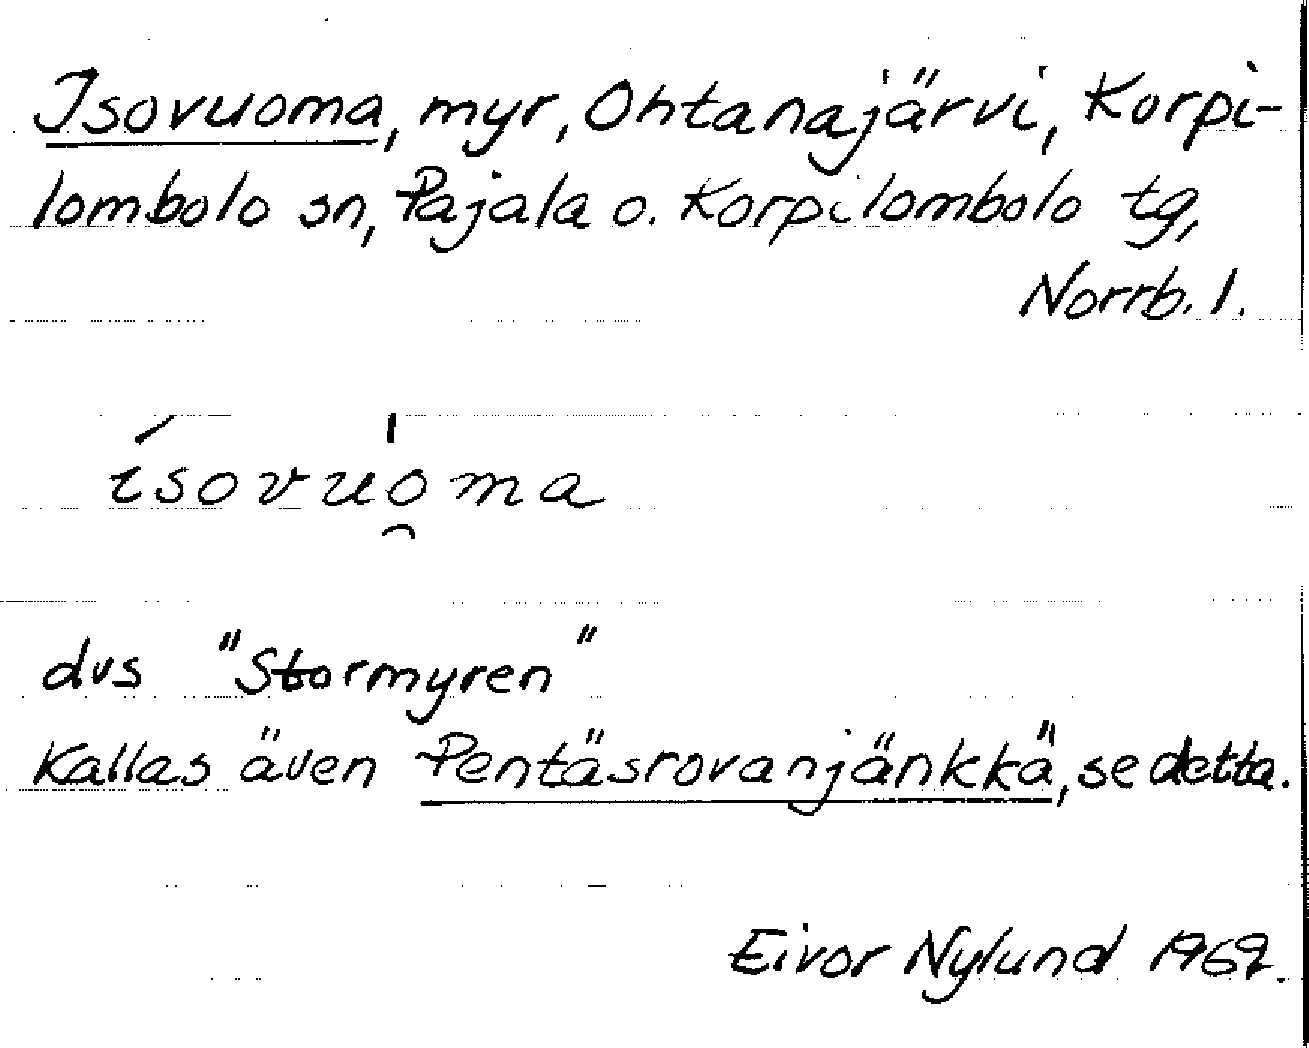 Isovuoma, myr, Ohtanajärvi, Korpi-
lombolo sn, Pajala o. Korpilombolo tg,
Norrb. l.
isovuoma
dvs "Stormyren"
Kallas även Pentäsrovanjänkkä, se detta.
Eivor Nylund 1962.